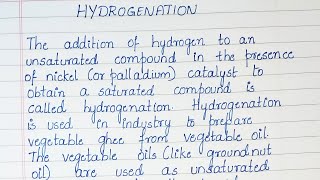 HYDROGENATION
The addition of hydrogen to an
unsaturated compound in the presence
of nickel (or palladium) catalyst to
obtain a saturated compound is
called hydrogenation. Hydrogenation
is used in industry to prepare
vegetable ghee from vegetable oil.
The vegetable oils (like groundnut
oil) are used as unsaturated